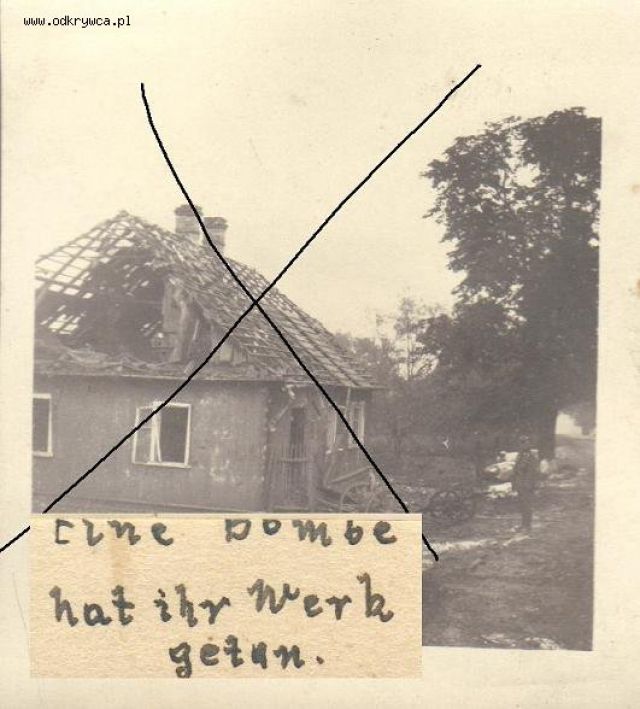 www.odkrywca.pl
Eine Bombe
hat ihr Werk
getan.